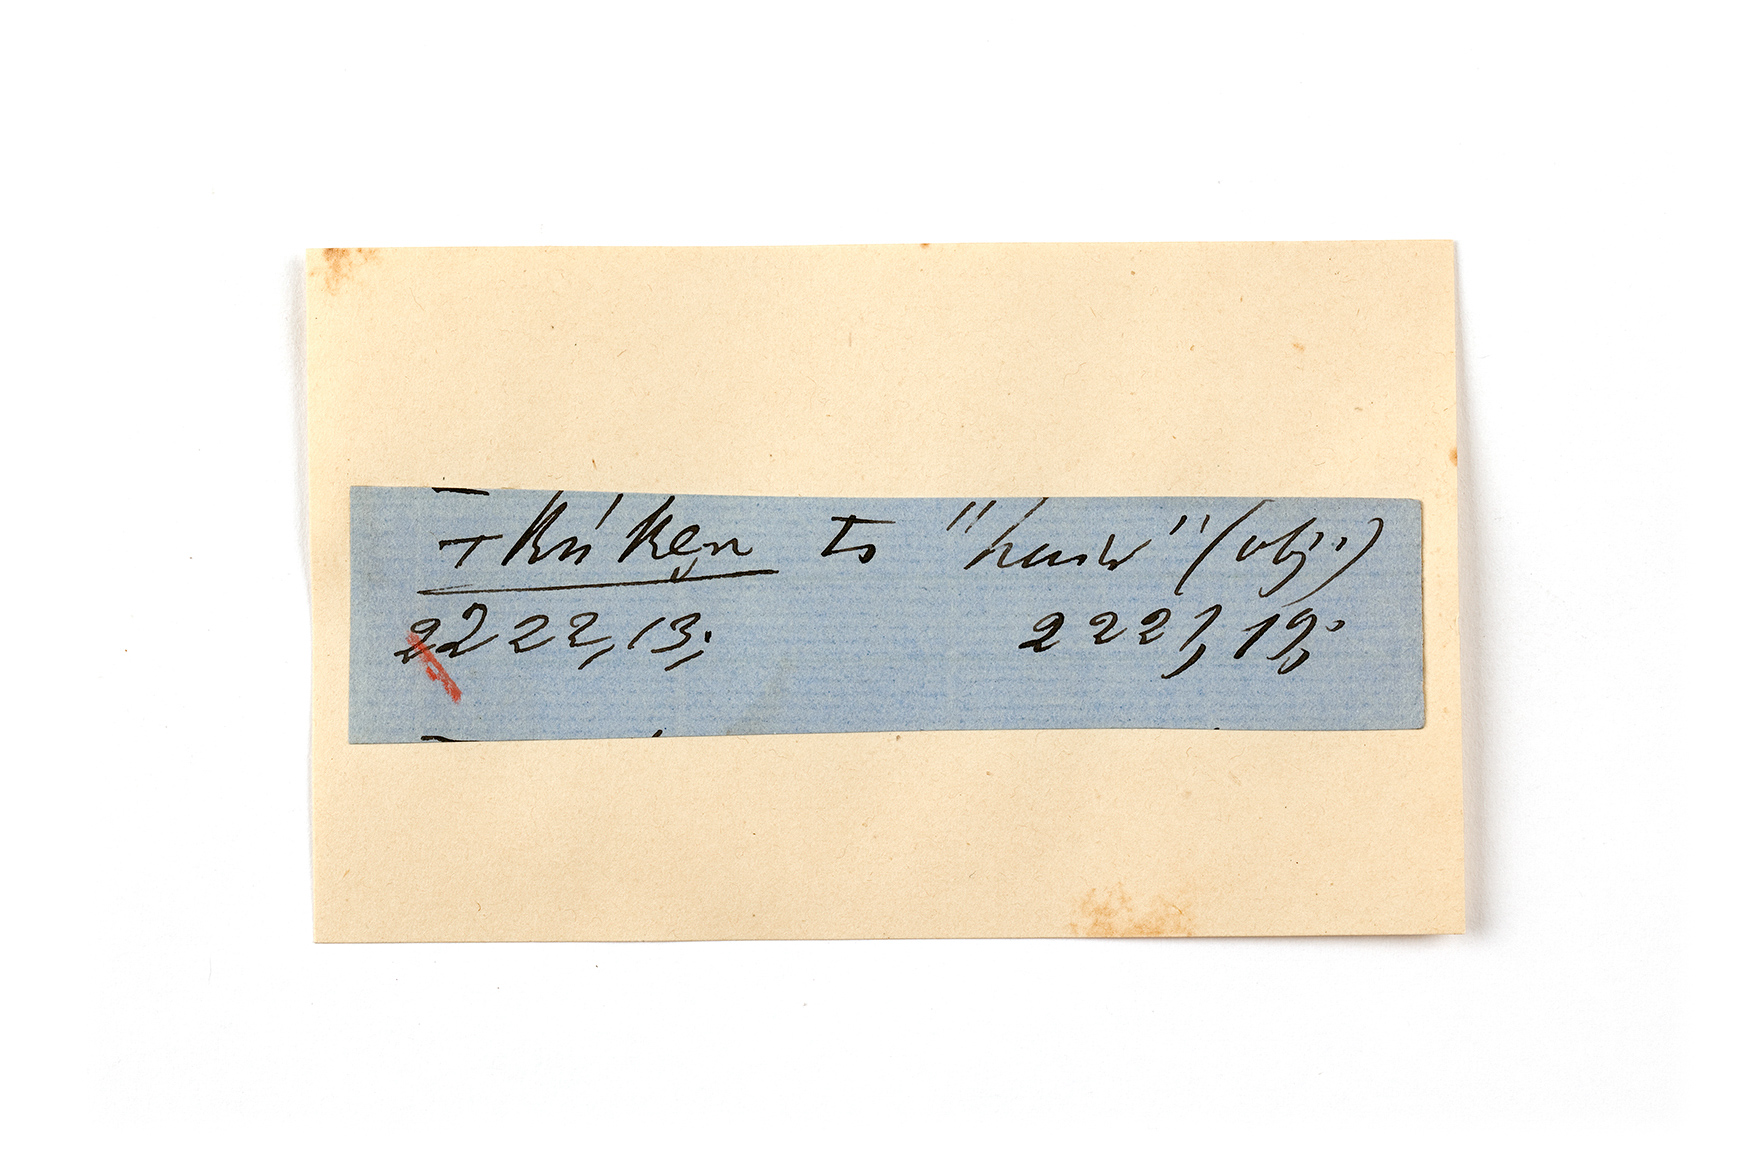 ⊤kúken to "hair" (obj.)
2222,13; 2221,19;